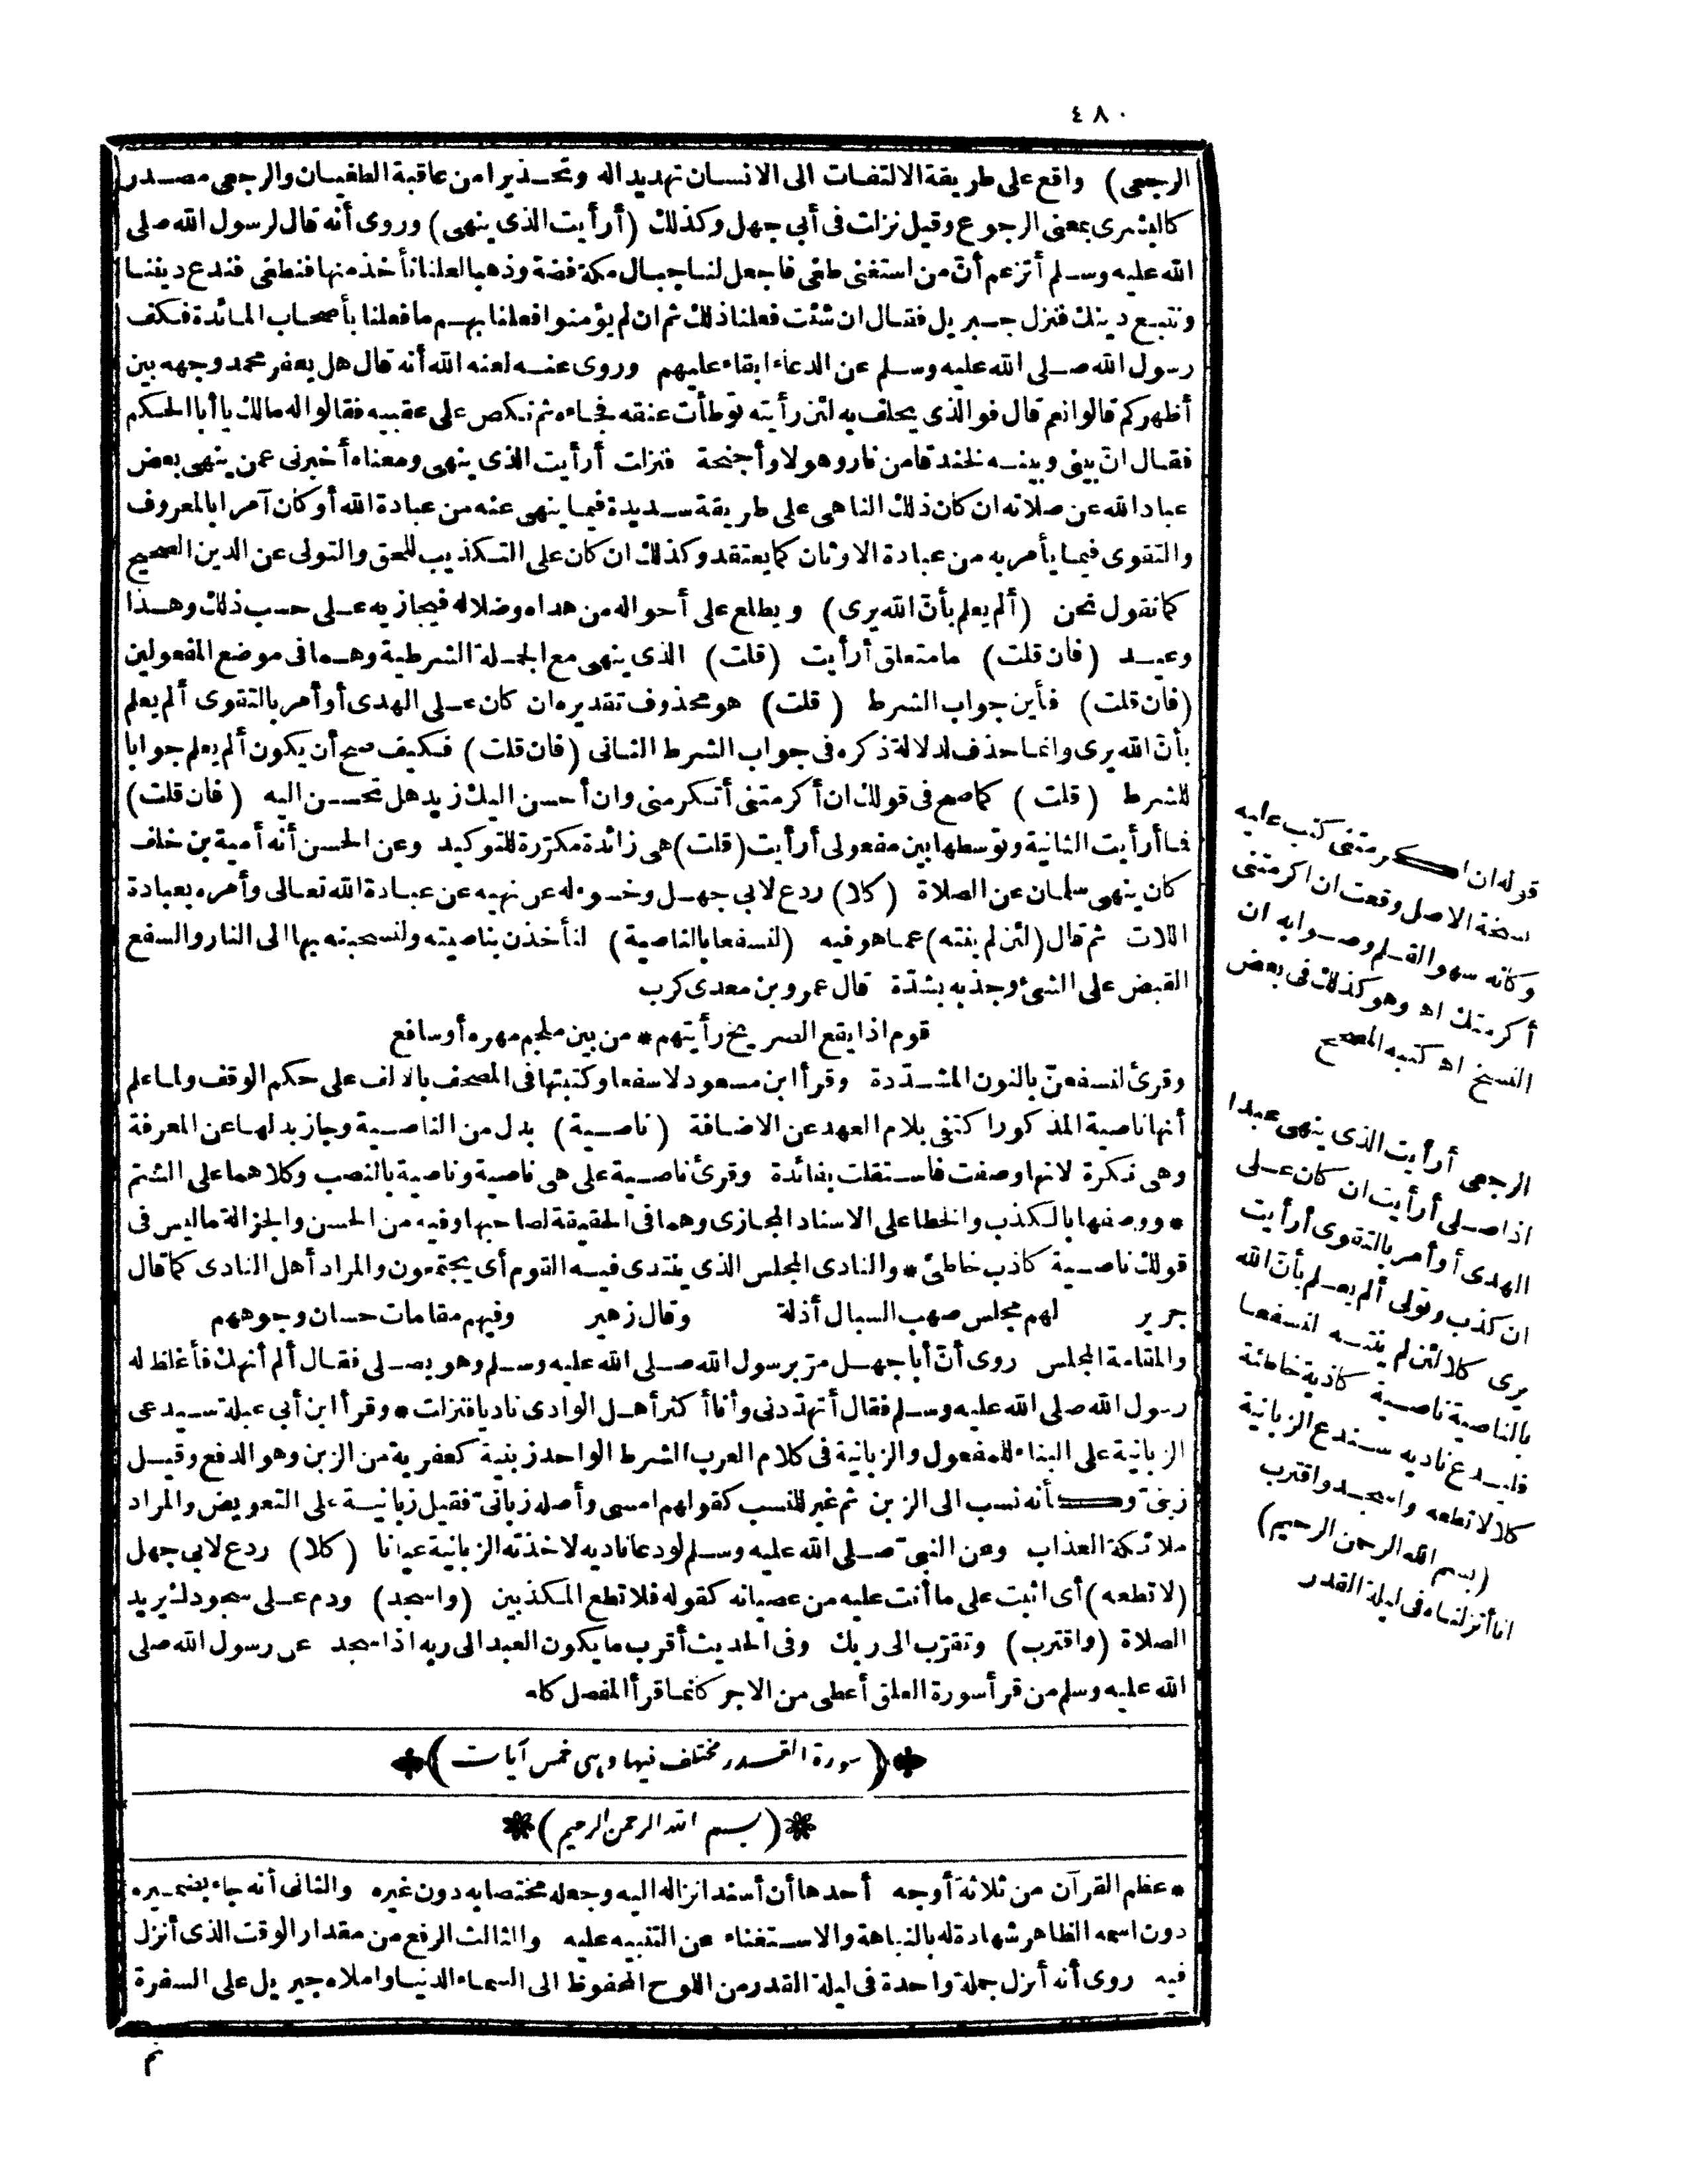 ٤٨٠
الرجعى) واقع على طريقة الالتفات الى الانسان تهديدا له وتحذيرا من عاقبة الطغيان والرجعى مصدر
كالبشرى بمعنى الرجوع وقيل نزلت فى أبى جهل وكذلك (أرأيت الذى ينهى) وروى أنه قال لرسول الله صلى
الله عليه وسلم أتزعم أنّ من استغنى طغى فاجعل لنا جبال مكة فضة وذهبا لعلنا نأخذ منها فنطغى فندع ديننا
ونتبع دينك فنزل جبريل فقال ان شئت فعلنا ذلك ثم ان لم يؤمنوا فعلنا بهم ما فعلنا بأصحاب المائدة فكف
رسول الله صلى الله عليه وسلم عن الدعاء ابقاء عليهم وروى عنه لعنه الله أنه قال هل يعفر محمد وجهه بين
أظهركم قالوا نعم قال فو الذى يحلف به لئن رأيته توطأت عنقه فجاءه ثم نكص على عقبيه فقالوا له مالك يا أبا الحكم
فقال انّ بينى وبينه لخندقا من نار وهولا وأجنحة فنزلت أرأيت الذى ينهى ومعناه أخبرنى عمن ينهى بعض
عباد الله عن صلاته ان كان ذلك الناهى على طريقة سديدة فيما ينهى عنه من عبادة الله أو كان آمرا بالمعروف
والتقوى فيما يأمر به من عبادة الاوثان كما يعتقد وكذلك ان كان على التكذيب للحق والتولى عن الدين الصحيح
كما نقول نحن (ألم يعلم بأنّ الله يرى) ويطلع على أحواله من هداه وضلاله فيجازيه على حسب ذلك وهذا
وعيد (فان قلت) ما متعلق أرأيت (قلت) الذى ينهى مع الجملة الشرطية وهما فى موضع المفعولين
(فان قلت) فأين جواب الشرط (قلت) هو محذوف تقديره ان كان على الهدى أو أمر بالتقوى ألم يعلم
بأنّ الله يرى وانما حذف لدلالة ذكره فى جواب الشرط الثانى (فان قلت) فكيف صح أن يكون ألم يعلم جوابا
للشرط (قلت) كما صح فى قولك ان أكرمتنى أتكرمنى وان أحسن اليك زيد هل تحسن اليه (فان قلت)
فما أرأيت الثانية وتوسطها بين مفعولى أرأيت (قلت) هى زائدة مكرّرة للتوكيد وعن الحسن أنه أمية بن خلف
كان ينهى سلمان عن الصلاة (كلا) ردع لابى جهل وخسوء له عن نهيه عن عبادة الله تعالى وأمره بعبادة
اللات ثم قال (لئن لم ينته) عما هو فيه (لنسفعا بالناصية) لنأخذن بناصيته ولنسحبنه بها الى النار والسفع
القبض على الشئ وجذبه بشدّة قال عمرو بن معدى كرب
قوم اذا يقع الصريخ رأيتهم * من بين ملجم مهره أو سافع
وقرئ لنسفعنّ بالنون المشدّدة وقرأ ابن مسعود لاسفعا وكتبتها فى المصحف بالالف على حكم الوقف ولما علم
أنها ناصية المذكور اكتفى بلام العهد عن الاضافة (ناصية) بدل من الناصية وجاز بدلها عن المعرفة
وهى نكرة لانها وصفت فاستقلت بفائدة وقرئ ناصية على هى ناصية وناصية بالنصب وكلاهما على الشتم
* ووصفها بالكذب والخطا على الاسناد المجازى وهما فى الحقيقة لصاحبها وفيه من الحسن والجزالة ما ليس فى
قولك ناصية كاذب خاطئ * والنادى المجلس الذى ينتدى فيه القوم أى يجتمعون والمراد أهل النادى كما قال
جرير لهم مجلس صهب السبال أذلة وقال زهير وفيهم مقامات حسان وجوههم
والمقامة المجلس روى أنّ أبا جهل مرّ برسول الله صلى الله عليه وسلم وهو يصلى فقال ألم أنهك فأغلظ له
رسول الله صلى الله عليه وسلم فقال أتهدّدنى وأنا أكثر أهل الوادى ناديا فنزلت * وقرأ ابن أبى عبلة سيدعى
الزبانية على البناء للمفعول والزبانية فى كلام العرب الشرط الواحد زبنية كعفرية من الزبن وهو الدفع وقيل
زبنىّ وكأنه نسب الى الزبن ثم غير للنسب كقولهم امسى وأصله زبانىّ فقيل زبانية على التعويض والمراد
ملائكة العذاب وعن النبىّ صلى الله عليه وسلم لو دعا ناديه لاخذته الزبانية عيانا (كلا) ردع لابى جهل
(لا تطعه) أى اثبت على ما أنت عليه من عصيانه كقوله فلا تطع المكذبين (واسجد) ودم على سجودك يريد
الصلاة (واقترب) وتقرّب الى ربك وفى الحديث أقرب ما يكون العبد الى ربه اذا سجد عن رسول الله صلى
الله عليه وسلم من قرأ سورة العلق أعطى من الاجر كأنما قرأ المفصل كله
(سورة القدر مختلف فيها وهى خمس آيات)
*(بسم الله الرحمن الرحيم)*
* عظم القرآن من ثلاثة أوجه أحدها أن أسند انزاله اليه وجعله مختصا به دون غيره والثانى أنه جاء بضميره
دون اسمه الظاهر شهادة له بالنباهة والاستغناء عن التنبيه عليه والثالث الرفع من مقدار الوقت الذى أنزل
فيه روى أنه أنزل جملة واحدة فى ليلة القدر من اللوح المحفوظ الى السماء الدنيا واملاه جبريل على السفرة
ثم
قوله ان اكرمتنى كتب عليه
نسخة الاصل وقعت ان اكرمتنى
وكانه سهو القلم وصوابه ان
أكرمتك اه وهو كذلك فى بعض
النسخ اه كتبه المصحح
الرجعى أرأيت الذى ينهى عبدا
اذا صلى أرأيت ان كان على
الهدى أو أمر بالتقوى أرأيت
ان كذب وتولى ألم يعلم بأنّ الله
يرى كلا لئن لم ينته لنسفعا
بالناصية ناصية كاذبة خاطئة
فليدع ناديه سندع الزبانية
كلا لا تطعه واسجد واقترب
(بسم الله الرحمن الرحيم)
انا أنزلناه فى ليلة القدر